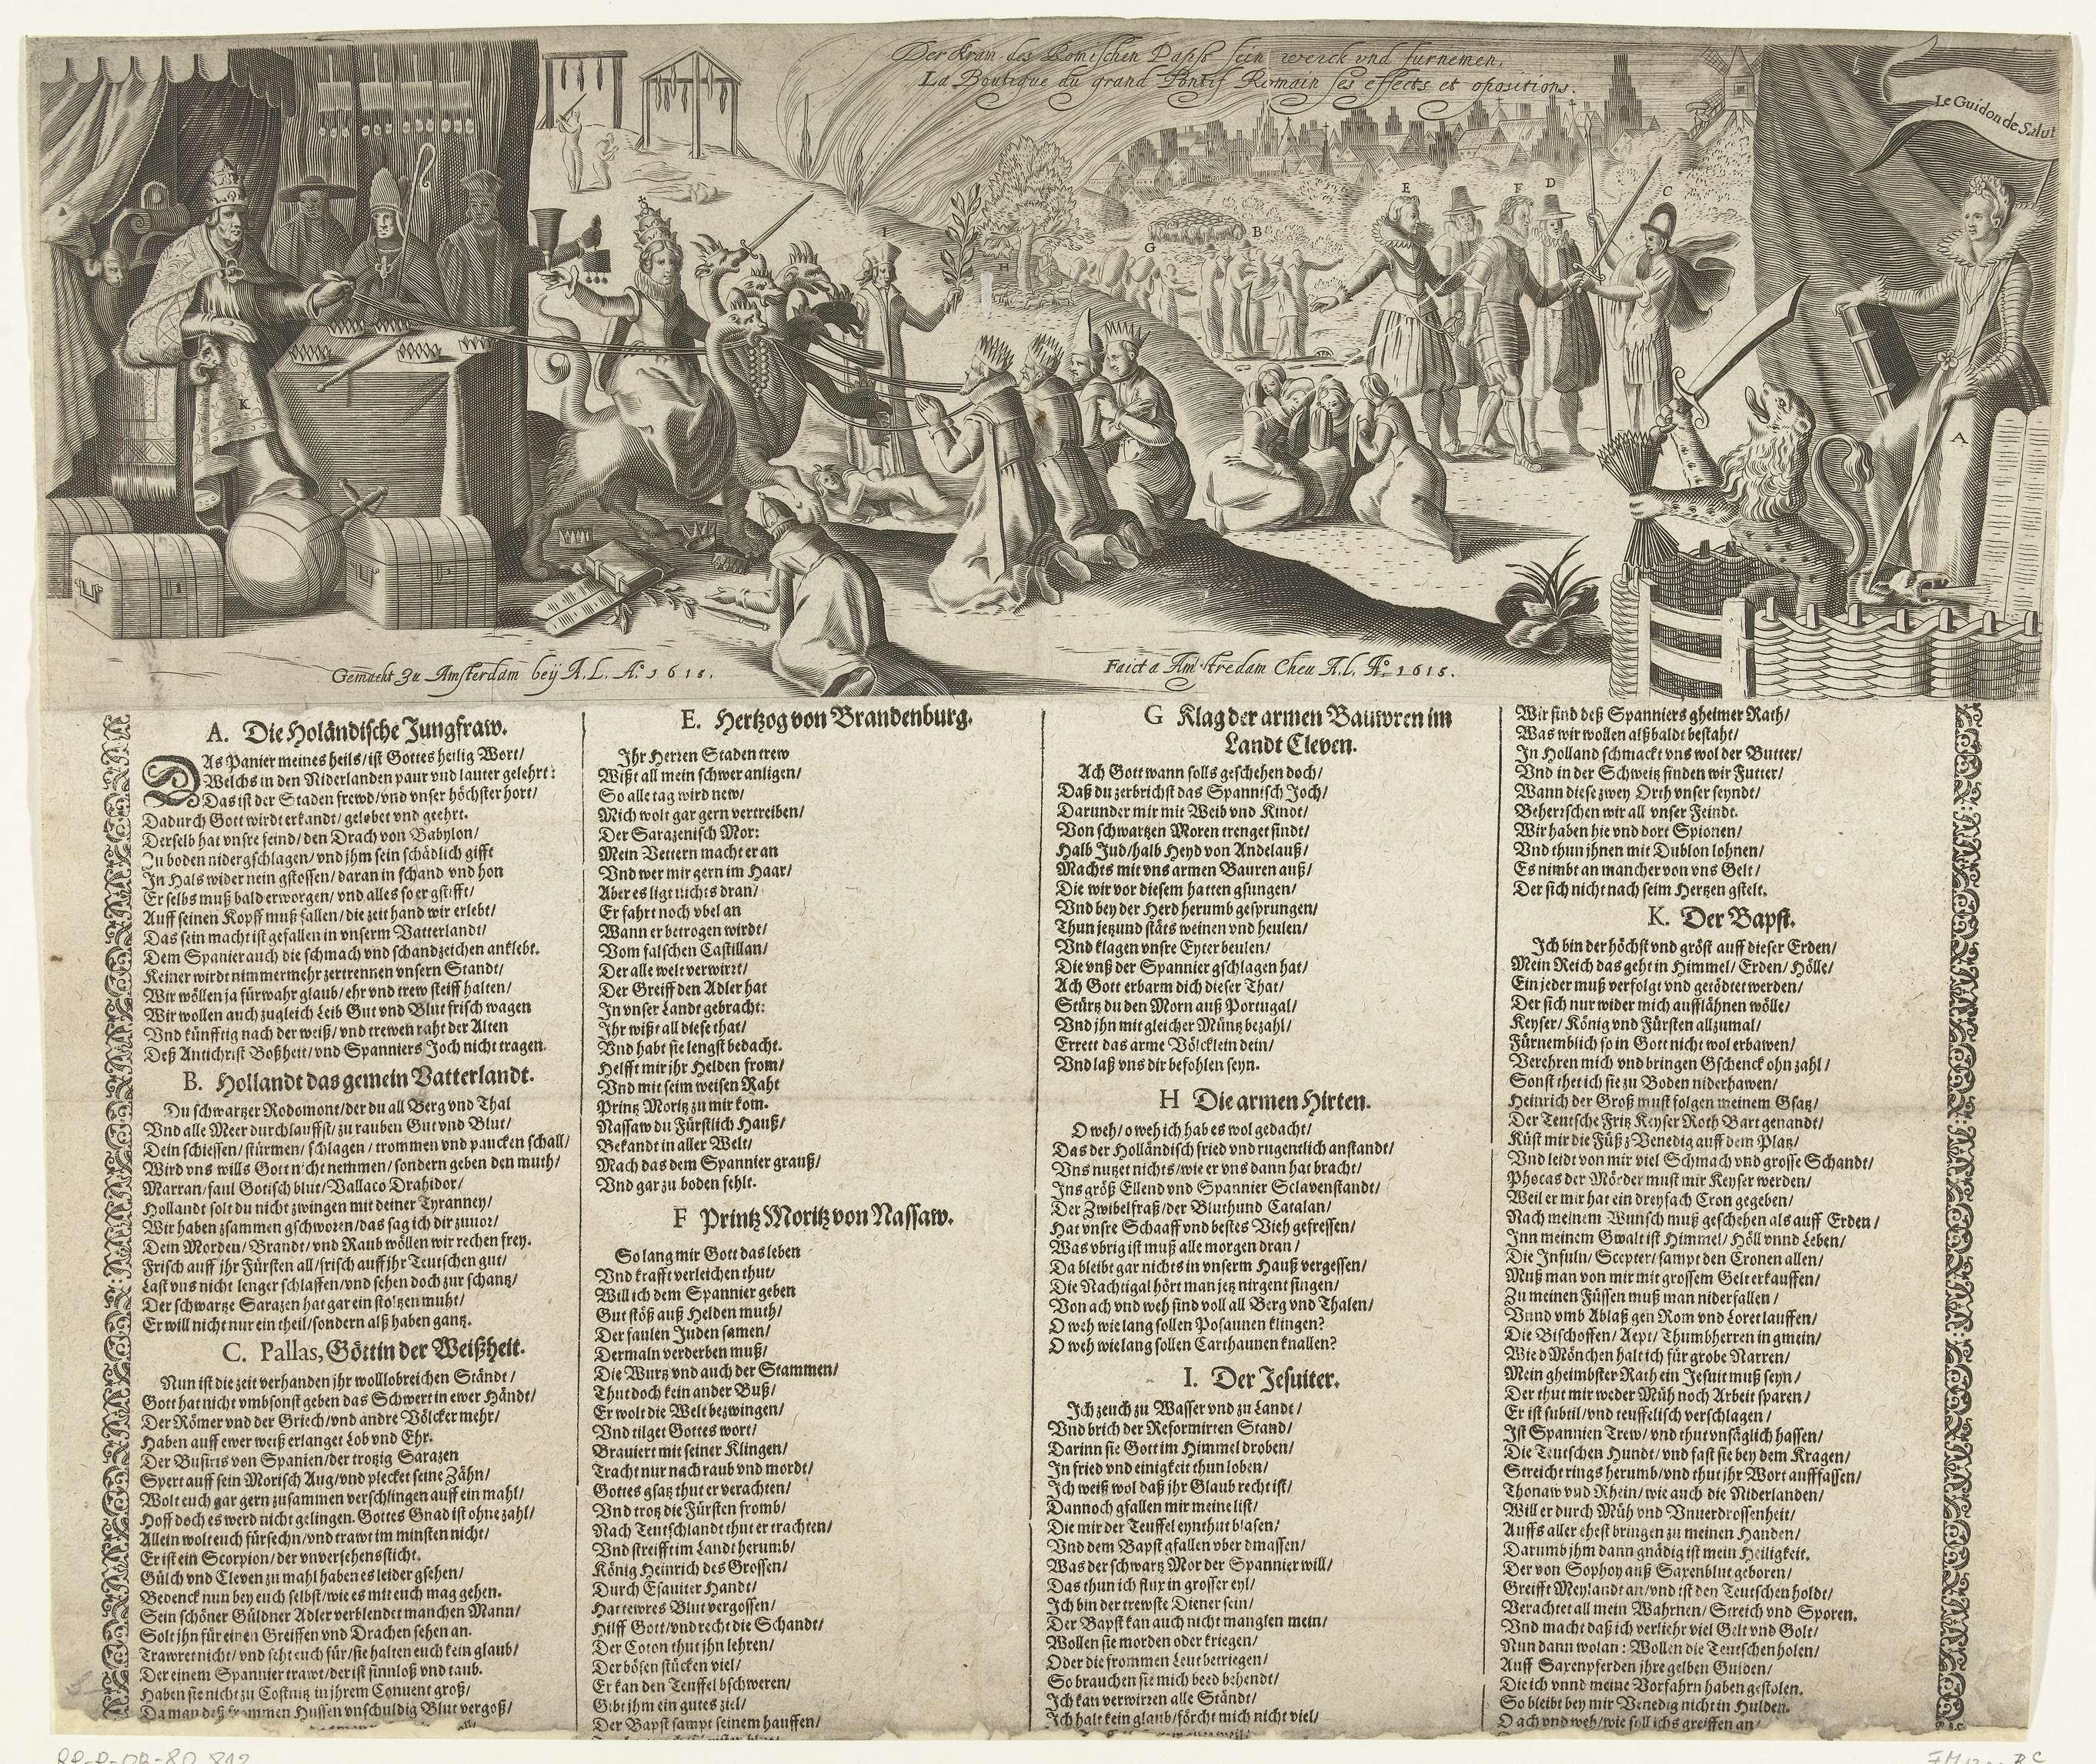 Der Kram des Römischen Papst sein werck vnd furnemen.
La Boutique du grand Pontif Romain ses effects et opositions.
Le Guidon de Salut
E
F
D
C
G
B
I
H
K
A
Gemacht Zu Amsterdam beÿ A. L. Aº 1615.
Faict a Amstredam Cheu A. L. Aº 1615.
A. Die Holändische Jungfraw.
DAs Panier meines heils/ist Gottes heilig Wort/
Welchs in den Niderlanden paur vnd lauter gelehrt:
Das ist der Staden frewd/vnd vnser höchster hort/
Dadurch Gott wirdt erkandt/gelobet vnd geehrt.
Derselb hat vnsre feind/den Drach von Babylon/
Zu boden nidergschlagen/vnd jhm sein schädlich gifft
In Hals wider nein gstossen/daran in schand vnd hon
Er selbs muß bald erworgen/vnd alles so er gstifft/
Auff seinen Kopff muß fallen/die zeit hand wir erlebt/
Das sein macht ist gefallen in vnserm Vatterlandt/
Dem Spanier auch die schmach vnd schandzeichen anklebt.
Keiner wirdt nimmermehr zertrennen vnsern Standt/
Wir wöllen ja fürwahr glaub/ehr vnd trew steiff halten/
Wir wollen auch zugleich Leib Gut vnd Blut frisch wagen
Vnd künfftig nach der weiß/vnd trewen raht der Alten
Deß Antichrist Boßheit/vnd Spanniers Joch nicht tragen.
B. Hollandt das gemein Vatterlandt.
Du schwartzer Rodomont/der du all Berg vnd Thal
Vnd alle Meer durchlauffst/zu rauben Gut vnd Blut/
Dein schiessen/stürmen/schlagen/trommen vnd paucken schall/
Wird vns wills Gott nicht nemmen/sondern geben den muth/
Marran/faul Gotisch blut/Vallaco Drahidor/
Hollandt solt du nicht zwingen mit deiner Tyranney/
Wir haben zsammen gschworen/das sag ich dir zuuor/
Dein Morden/Brandt/vnd Raub wöllen wir rechen frey.
Frisch auff jhr Fürsten all/frisch auff jhr Teutschen gut/
Last vns nicht lenger schlaffen/vnd sehen doch zur schantz/
Der schwartze Sarazen hat gar ein stoltzen muht/
Er will nicht nur ein theil/sondern alß haben gantz.
C. Pallas, Göttin der Weißheit.
Nun ist die zeit verhanden jhr wolllobreichen Ständt/
Gott hat nicht vmbsonst geben das Schwert in ewer Händt/
Der Römer vnd der Griech/vnd andre Völcker mehr/
Haben auff ewer weiß erlanget Lob vnd Ehr.
Der Busiris von Spanien/der trotzig Sarazen
Spert auff sein Morisch Aug/vnd plecket seine Zähn/
Wolt euch gar gern zusammen verschlingen auff ein mahl/
Hoff doch es werd nicht gelingen. Gottes Gnad ist ohne zahl/
Allein wolt euch fürsehn/vnd trawt im minsten nicht/
Er ist ein Scorpion/der vnversehens sticht.
Gülch vnd Cleven zu mahl haben es leider gsehen/
Bedenck nun bey euch selbst/wie es mit euch mag gehen.
Sein schöner Güldner Adler verblendet manchen Mann/
Solt jhn für einen Greiffen vnd Drachen sehen an.
Trawret nicht/vnd seht euch für/sie halten euch kein glaub/
Der einem Spannier trawt/der ist sinnloß vnd taub.
Haben sie nicht zu Costnitz in jhrem Conuent groß/
Da man deß frommen Hussen vnschuldig Blut vergoß/
E. Hertzog von Brandenburg.
Ihr Herren Staden trew
Wißt all mein schwer anligen/
So alle tag wird new/
Mich wolt gar gern vertreiben/
Der Sarazenisch Mor:
Mein Vettern macht er an
Vnd wer mir gern im Haar/
Aber es ligt nichts dran/
Er fahrt noch vbel an
Wann er betrogen wirdt/
Vom falschen Castillan/
Der alle welt verwirrt/
Der Greiff den Adler hat
In vnser Landt gebracht:
Ihr wißt all diese that/
Vnd habt sie lengst bedacht.
Helfft mir jhr Helden from/
Vnd mit seim weisen Raht
Printz Moritz zu mir kom.
Nassaw du Fürstlich Hauß/
Bekandt in aller Welt/
Mach das dem Spannier grauß/
Vnd gar zu boden fehlt.
F Printz Moritz von Nassaw.
So lang mir Gott das leben
Vnd krafft verleichen thut/
Will ich dem Spannier geben
Gut stöß auß Helden muth/
Der faulen Juden samen/
Dermaln verderben muß/
Die Wurtz vnd auch der Stammen/
Thut doch kein ander Buß/
Er wolt die Welt bezwingen/
Vnd tilget Gottes wort/
Brauiert mit seiner Klingen/
Tracht nur nach raub vnd mordt/
Gottes gsatz thut er verachten/
Vnd trotz die Fürsten fromb/
Nach Teutschlandt thut er trachten/
Vnd streifft im Landt herumb/
König Heinrich des Grossen/
Durch Esauiter Handt/
Hat tewres Blut vergossen/
Hilff Gott/vnd recht die Schandt/
Der Coton thut jhn lehren/
Der bösen stücken viel/
Er kan den Teuffel bschweren/
Gibt jhm ein gutes ziel/
Der Bapst sampt seinem hauffen/
G Klag der armen Bauwren im
Landt Cleven.
Ach Gott wann solls geschehen doch/
Daß du zerbrichst das Spannisch Joch/
Darunder mir mit Weib vnd Kindt/
Von schwartzen Moren trenget sindt/
Halb Jud/halb Heyd von Andelauß/
Machts mit vns armen Bauren auß/
Die wir vor diesem hatten gsungen/
Vnd bey der Herd herumb gesprungen/
Thun jetzund stäts weinen vnd heulen/
Vnd klagen vnsre Eyterbeulen/
Die vnß der Spannier gschlagen hat/
Ach Gott erbarm dich dieser That/
Stürtz du den Morn auß Portugal/
Vnd jhn mit gleicher Müntz bezahl/
Errett das arme Völcklein dein/
Vnd laß vns dir befohlen seyn.
H Die armen Hirten.
O weh/o weh ich hab es wol gedacht/
Das der Holländisch fried vnd rugentlich anstandt/
Vns nutzet nichts/wie er vns dann hat bracht/
Ins größ Ellend vnd Spannier Sclavenstandt/
Der Zwibelfraß/der Bluthund Catalan/
Hat vnsre Schaaff vnd bestes Vieh gefressen/
Was vbrig ist muß alle morgen dran/
Da bleibt gar nichts in vnserm Hauß vergessen/
Die Nachtigal hört man jetz nirgent singen/
Von ach vnd weh sind voll all Berg vnd Thalen/
O weh wie lang sollen Posaunen klingen?
O weh wie lang sollen Carthaunen knallen?
I. Der Jesuiter.
Ich zeuch zu Wasser vnd zu Landt/
Vnd brich der Reformirten Stand/
Darinn sie Gott im Himmel droben/
In fried vnd einigkeit thun loben/
Ich weiß wol daß jhr Glaub recht ist/
Dannoch gfallen mir meine list/
Die mir der Teuffel eynthut blasen/
Vnd dem Bapst gfallen vber dmassen/
Was der schwartz Mor der Spannier will/
Das thun ich flux in grosser eyl/
Ich bin der trewste Diener sein/
Der Bapst kan auch nicht manglen mein/
Wollen sie morden oder kriegen/
Oder die frommen Leut betriegen/
So brauchen sie mich beed behendt/
Ich kan verwirren alle Ständt/
Ich halt kein glaub/förcht mich nicht viel/
Wir sind deß Spanniers gheimer Rath/
Was wir wollen alßbaldt bestaht/
In Holland schmackt vns wol der Butter/
Vnd in der Schweitz finden wir Futter/
Wann diese zwey Orth vnser seyndt/
Beherrschen wir all vnser Feindt.
Wir haben hie vnd dort Spionen/
Vnd thun jhnen mit Dublon lohnen/
Es nimbt an mancher von vns Gelt/
Der sich nicht nach seim Hertzen gstelt.
K. Der Bapst.
Ich bin der höchst vnd gröst auff dieser Erden/
Mein Reich das geht in Himmel/Erden/Hölle/
Ein jeder muß verfolgt vnd getödtet werden/
Der sich nur wider mich aufflähnen wölle/
Keyser/König vnd Fürsten allzumal/
Fürnemblich so in Gott nicht wol erbawen/
Verehren mich vnd bringen Gschenck ohn zahl/
Sonst thet ich sie zu Boden niderhawen/
Heinrich der Groß must folgen meinem Gsatz/
Der Teutsche Fritz Keyser Roth Bart genandt/
Küst mir die Füß z Venedig auff dem Platz/
Vnd leidt von mir viel Schmach vnd grosse Schandt/
Phocas der Mörder must mir Keyser werden/
Weil er mir hat ein dreyfach Cron gegeben/
Nach meinem Wunsch muß geschehen als auff Erden/
Inn meinem Gwalt ist Himmel/Höll vnnd Leben/
Die Infuln/Scepter/sampt den Cronen allen/
Muß man von mir mit grossem Gelt erkauffen/
Zu meinen Füssen muß man niderfallen/
Vnnd vmb Ablaß gen Rom vnd Loret lauffen/
Die Bischoffen/Aept/Thumbherren in gmein/
Wie d Mönchen halt ich für grobe Narren/
Mein gheimbster Rath ein Jesuit muß seyn/
Der thut mir weder Müh noch Arbeit sparen/
Er ist subtil/vnd teuffelisch verschlagen/
Ist Spannien Trew/vnd thut vnsäglich hassen/
Die Teutschen Hundt/vnd fast sie bey dem Kragen/
Streicht rings herumb/vnd thut jhr Wort auffassen/
Thonaw vnd Rhein/wie auch die Niderlanden/
Will er durch Müh vnd Vnuerdrossenheit/
Auffs aller ehest bringen zu meinen Handen/
Darumb jhm dann gnädig ist mein Heiligkeit.
Der von Sophoy auß Saxenblut geboren/
Greifft Meylandt an/vnd ist den Teutschen holdt/
Verachtet all mein Wahrnen/Streich vnd Sporen.
Vnd macht daß ich verliehr viel Gelt vnd Golt/
Nun dann wolan: Wollen die Teutschen holen/
Auff Saxenpferden jhre gelben Gulden/
Die ich vnnd meine Vorfahrn haben gestolen.
So bleibt bey mir Venedig nicht in Hulden.
O ach vnd weh/wie soll ichs greiffen an/
RP-P-OB-80.812